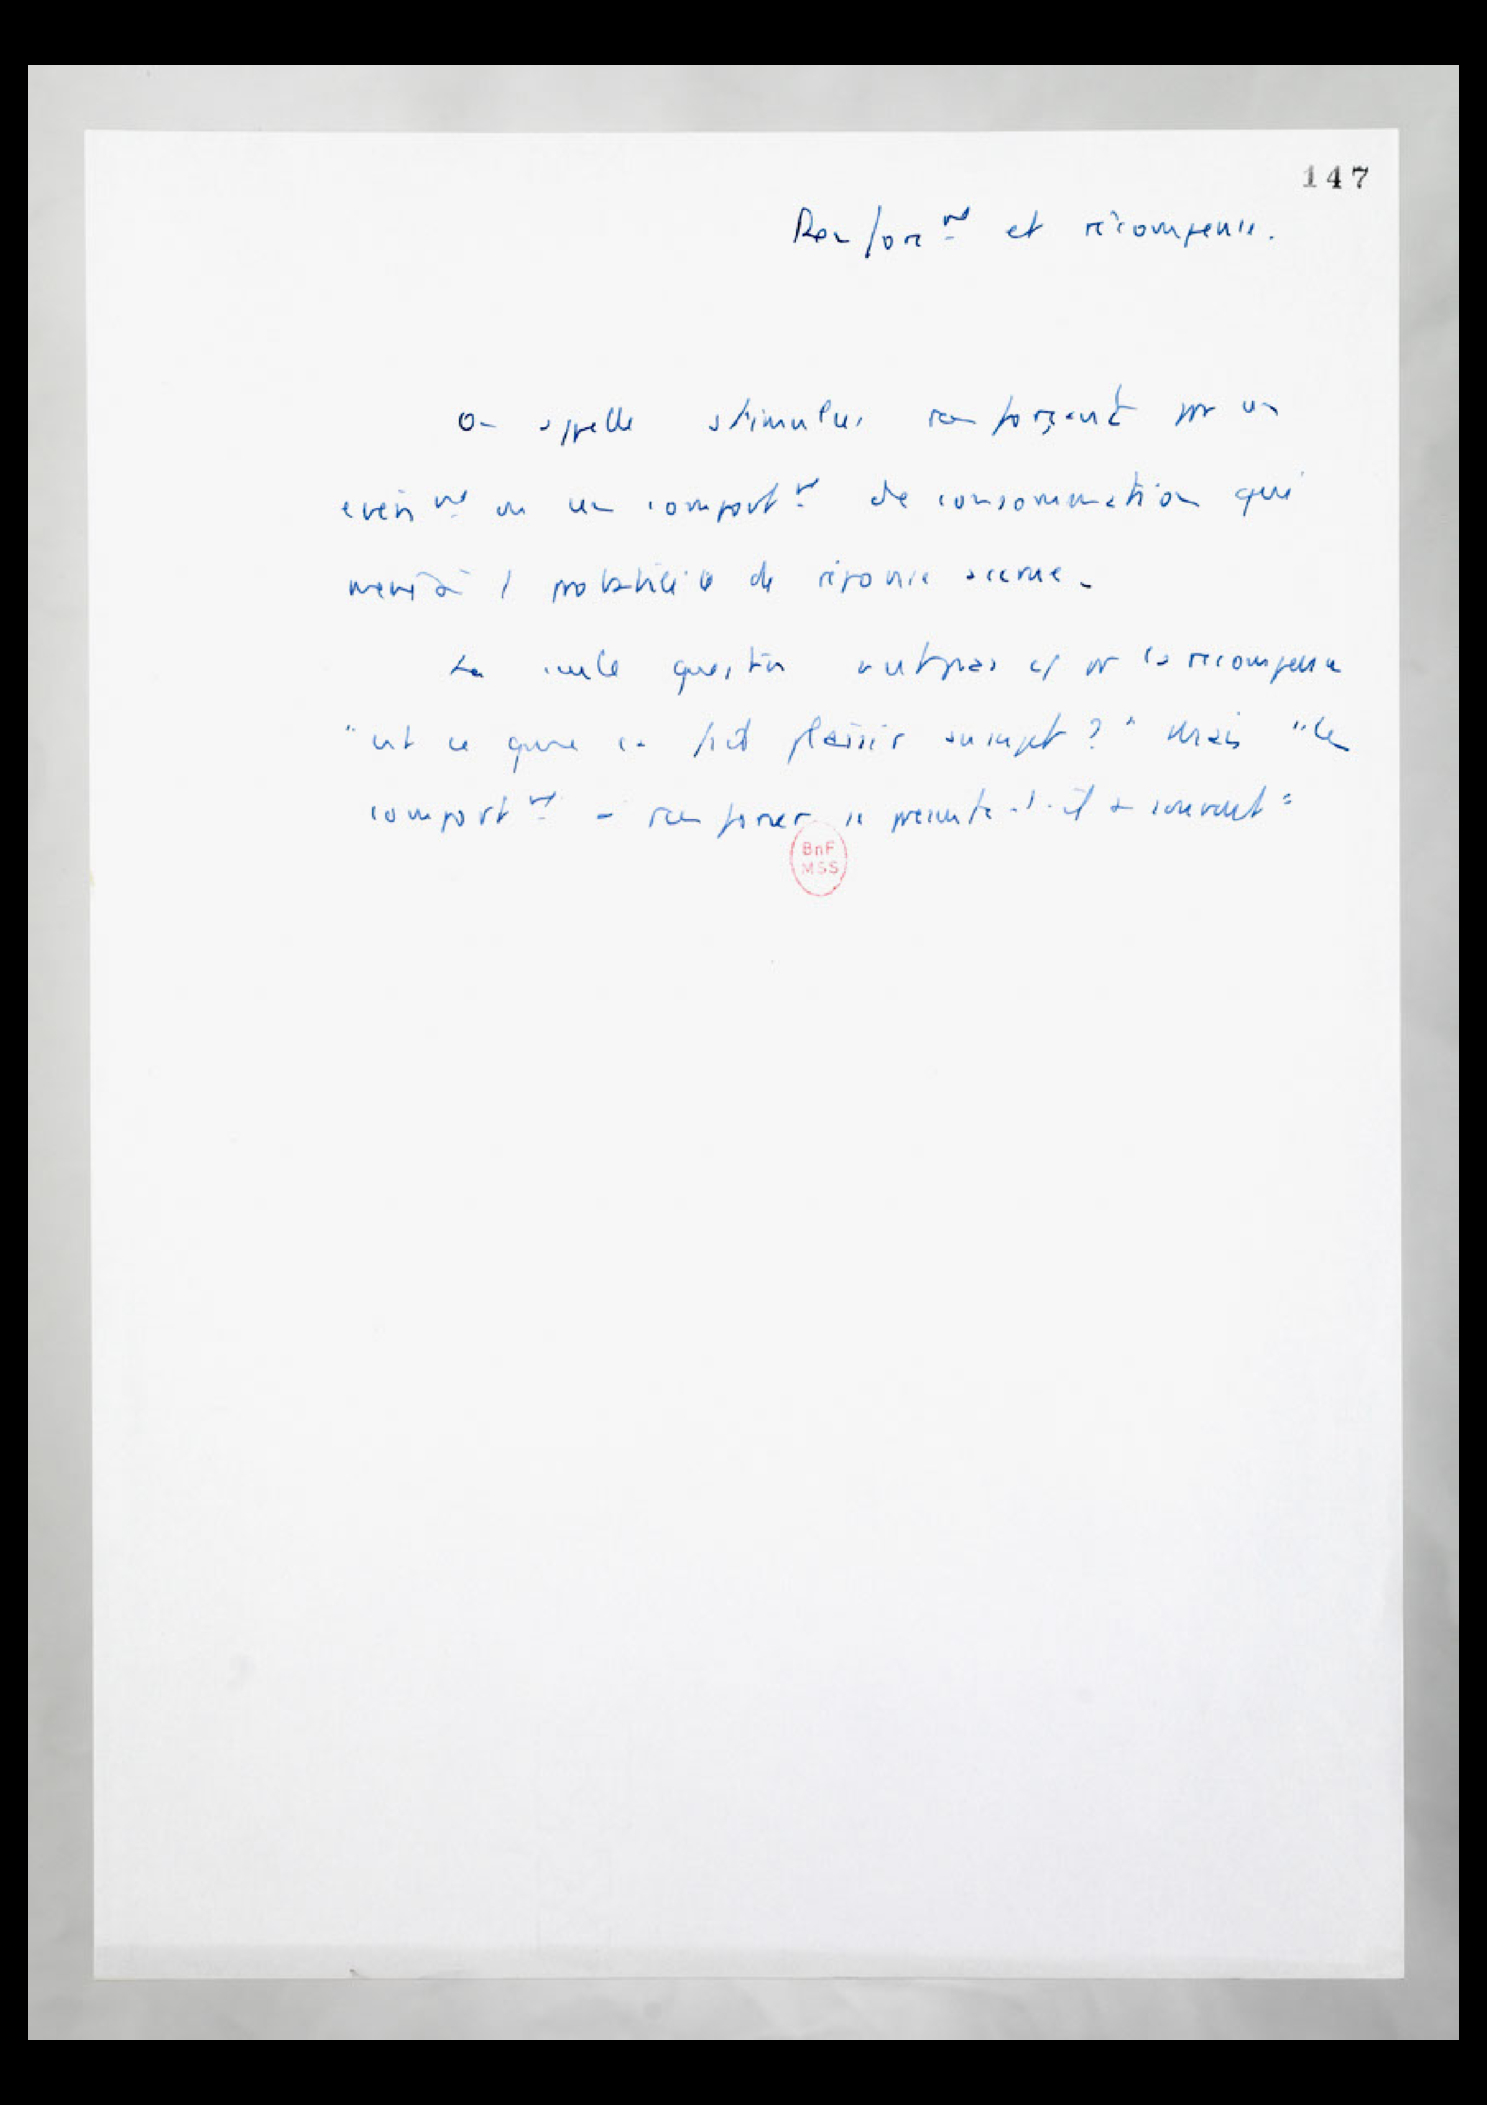 147
Renforcᵐᵗ et récompense.
On appelle stimulus renforçant pr un
événᵐᵗ ou un comportᵐᵗ de consommation qui
mène à 1 probabilité de réponse accrue.
La seule question n'est pas cf pr la récompense
"est ce que ça fait plaisir au sujet ?" Mais "le
comportᵐᵗ à renforcer se présente-t-il + souvent"
BnF
MSS